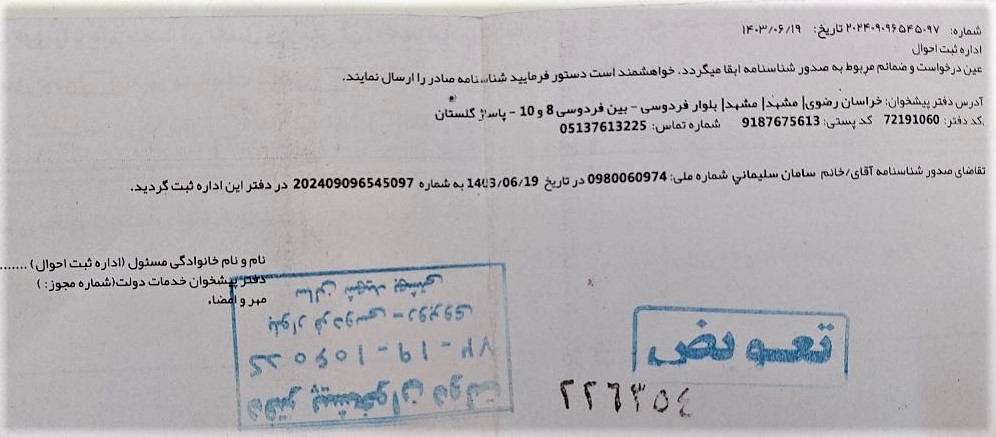 شماره: ۲۰۲۴۰۹۰۹۶۵۴۵۰۹۷ تاریخ: ۱۴۰۳/۰۶/۱۹
اداره ثبت احوال
عین درخواست و ضمائم مربوط به صدور شناسنامه ابقا میگردد. خواهشمند است دستور فرمایید شناسنامه صادر را ارسال نمایند.
آدرس دفتر پیشخوان: خراسان رضوی| مشهد| مشهد| بلوار فردوسی - بین فردوسی 8 و 10 - پاساژ گلستان
کد دفتر: 72191060 کد پستی: 9187675613 شماره تماس: 05137613225
تقاضای صدور شناسنامه آقای/خانم سامان سليماني شماره ملی: 0980060974 در تاریخ 1403/06/19 به شماره 202409096545097 در دفتر این اداره ثبت گردید.
نام و نام خانوادگی مسئول (اداره ثبت احوال) .......
دفتر پیشخوان خدمات دولت(شماره مجوز: )
مهر و امضاء
دفتر پیشخوان دولت
کد ۱۰۶۰-۱۹-۷۲
بلوار فردوسی - روبروی
سالن شهید بهشتی
تعویض
۲۲۶۳۵٤